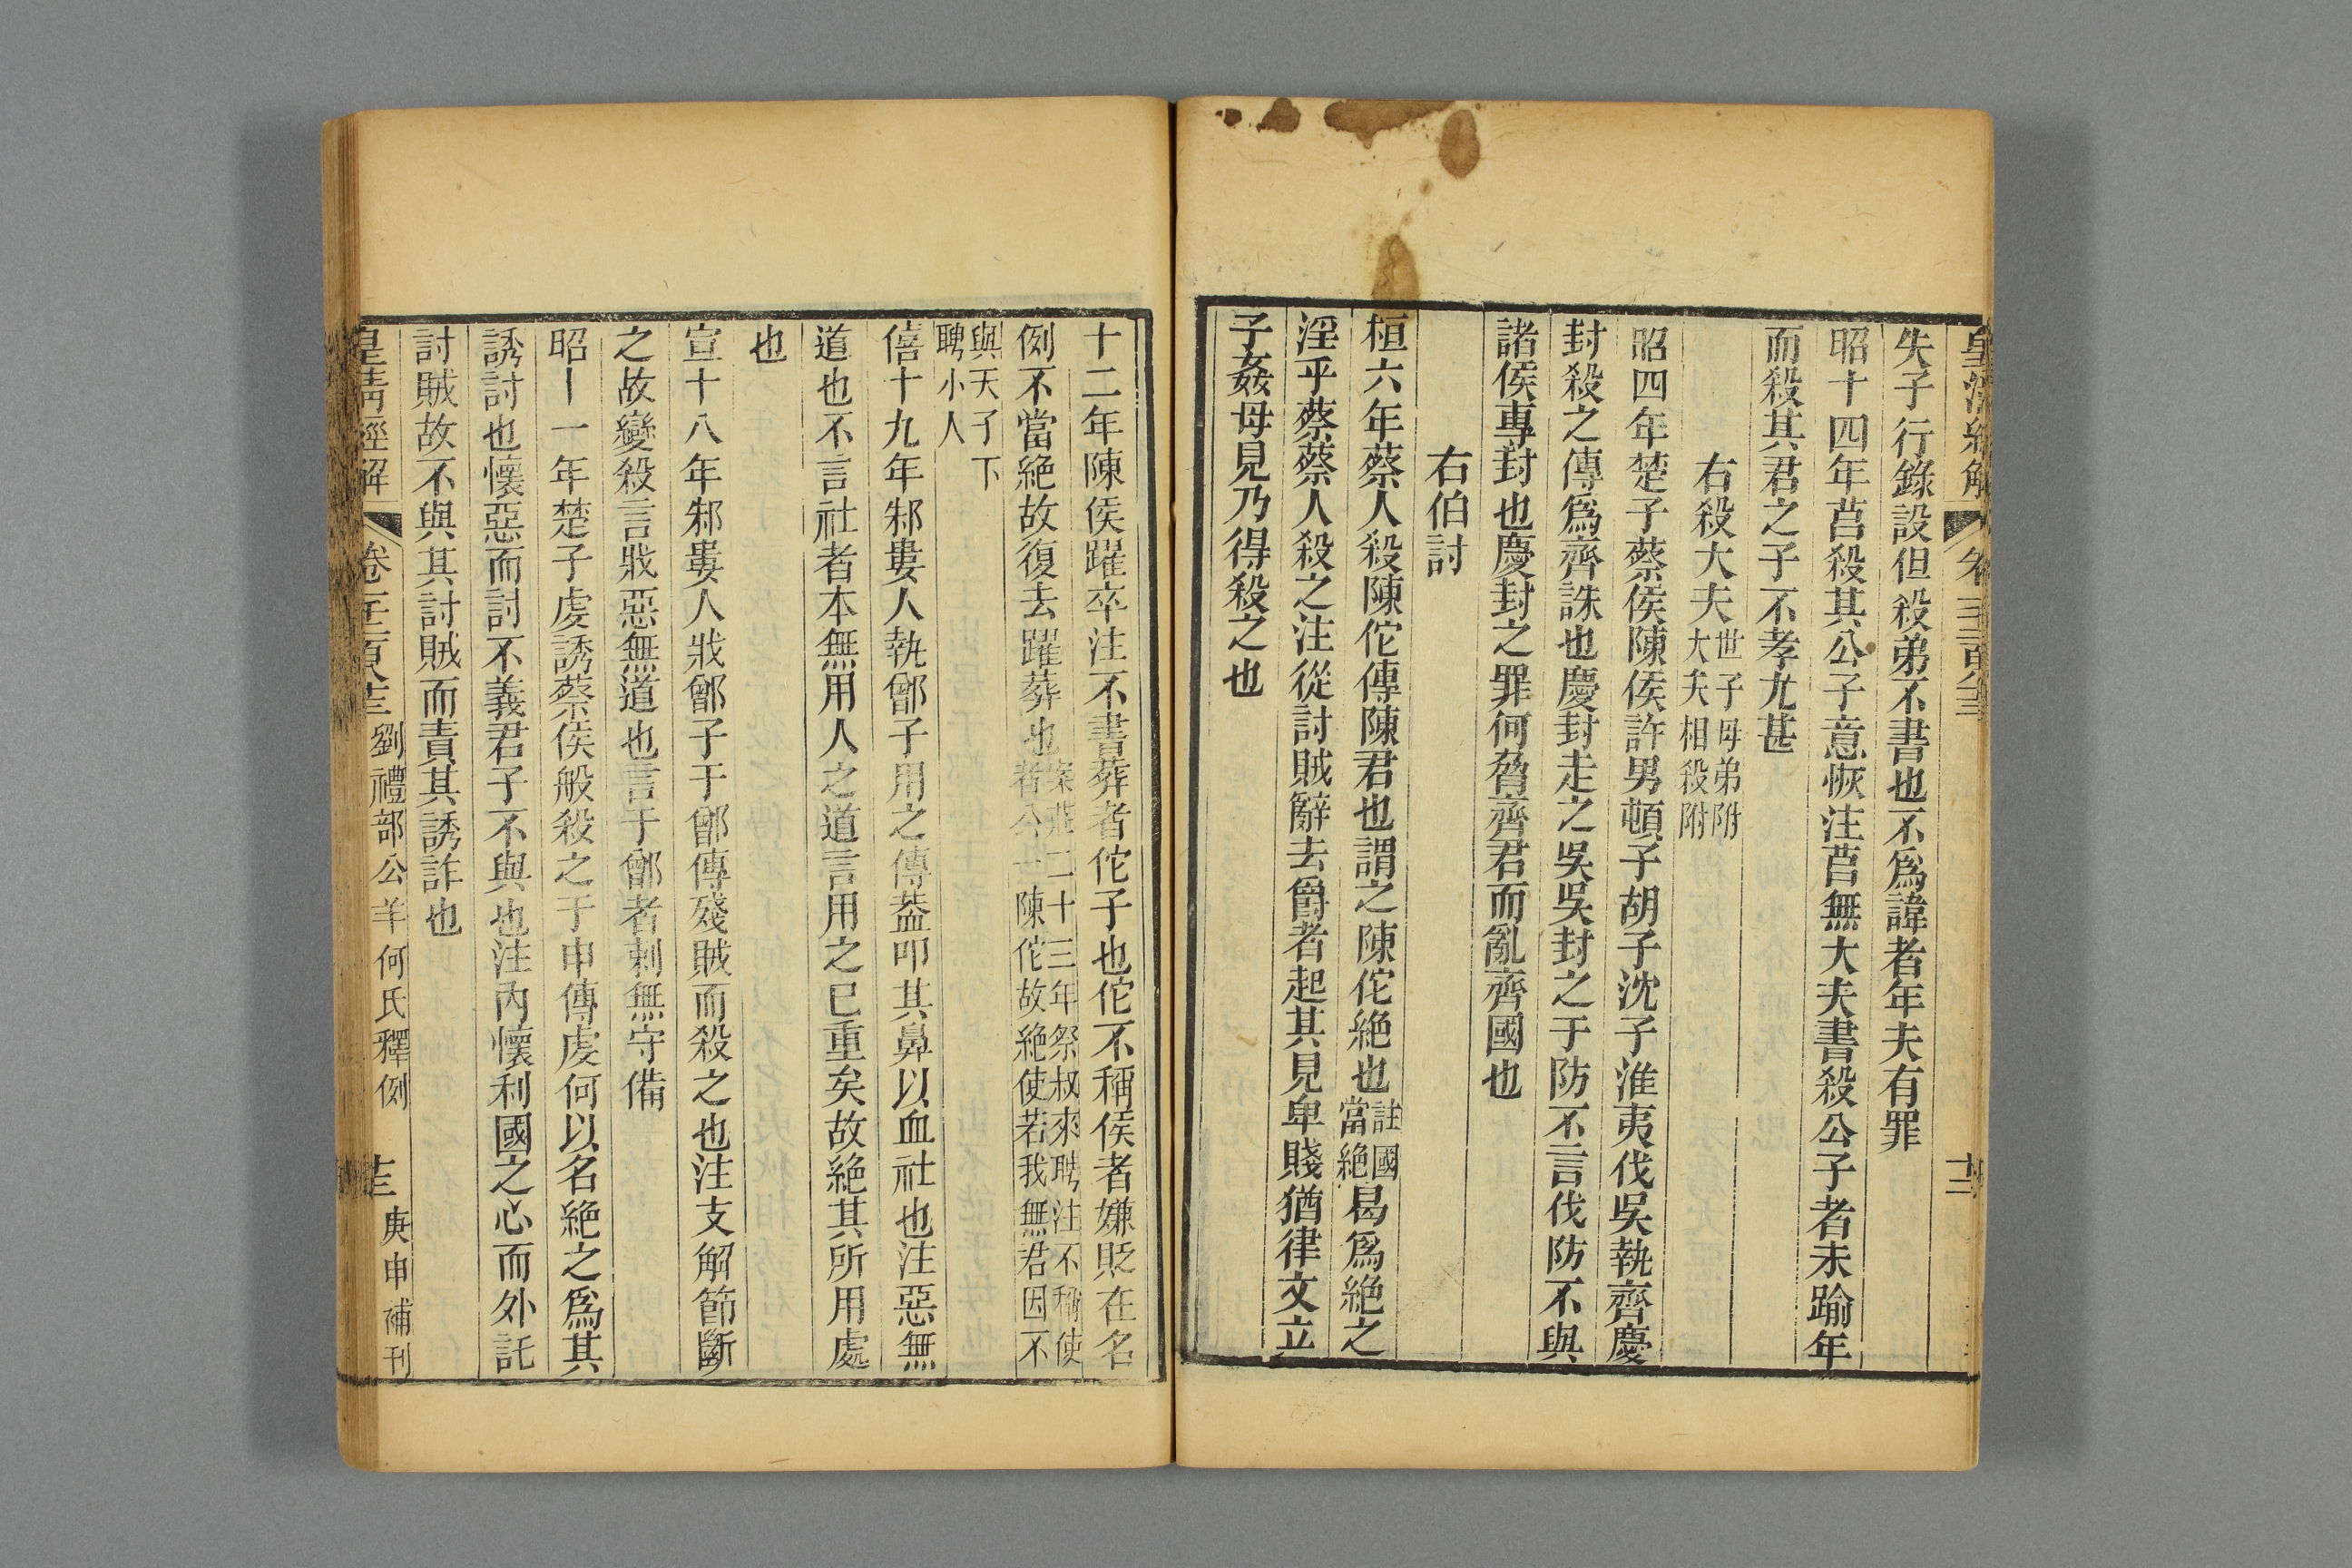 失子行錄設但殺弟不書也不爲諱者年夫有罪
昭十四年莒殺其公子意恢注莒無大夫書殺公子者未踰年
而殺其君之子不孝尤甚
右殺大夫世子母弟附大夫相殺附
昭四年楚子蔡侯陳侯許男頓子胡子沈子淮夷伐吳執齊慶
封殺之傳爲齊誅也慶封走之吳吳封之于防不言伐防不與
諸侯專封也慶封之罪何脅齊君而亂齊國也
右伯討
桓六年蔡人殺陳佗傳陳君也謂之陳佗絕也註國當絕曷爲絕之
淫乎蔡蔡人殺之注從討賊辭去爵者起其見卑賤猶律文立
子姦母見乃得殺之也
十二年陳侯躍卒注不書葬者佗子也佗不稱侯者嫌貶在名
例不當絕故復去躍葬也案莊二十三年祭叔來聘注不稱使者公一陳佗故絕使若我無君因不
與天子下聘小人
僖十九年邾婁人執鄫子用之傳葢叩其鼻以血社也注惡無
道也不言社者本無用人之道言用之已重矣故絕其所用處
也
宣十八年邾婁人戕鄫子于鄫傳殘賊而殺之也注支解節斷
之故變殺言戕惡無道也言于鄫者刺無守備
昭十一年楚子虔誘蔡侯般殺之于申傳虔何以名絕之爲其
誘討也懷惡而討不義君子不與也注內懷利國之心而外託
討賊故不與其討賊而責其誘詐也
皇清經解 劉禮部公羊何氏釋例 庚申補刊